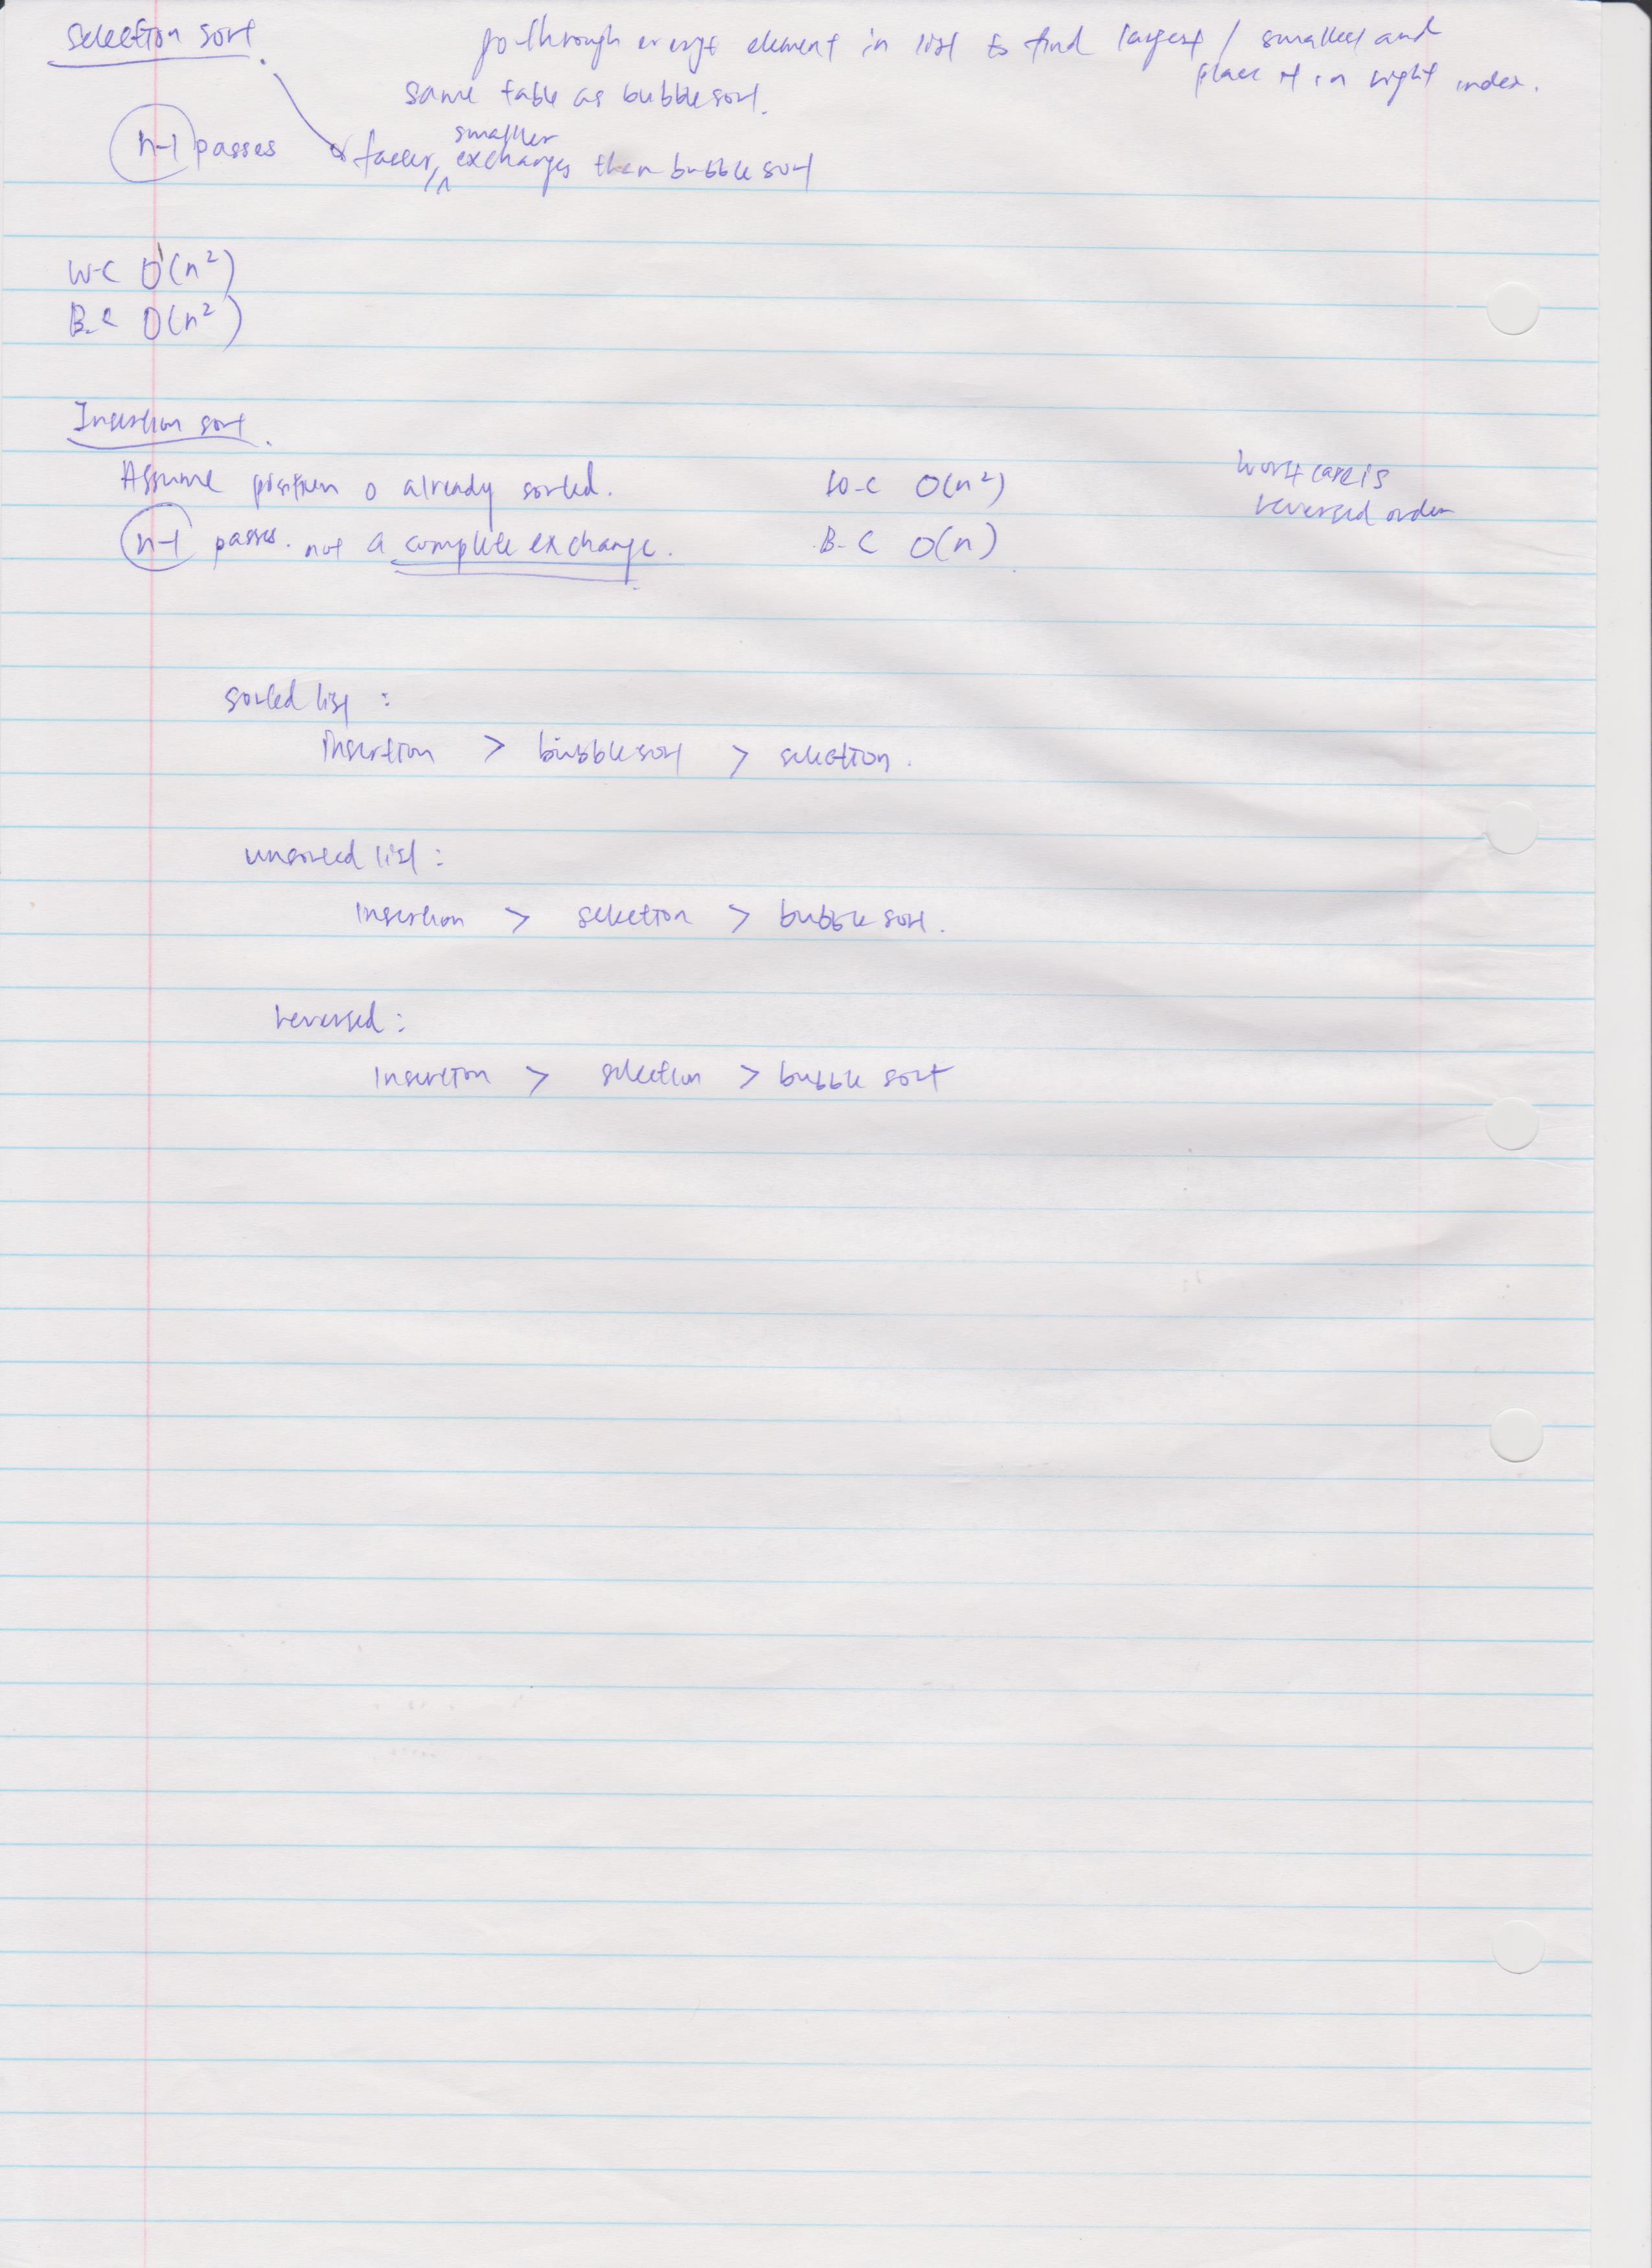 Selection sort.
go through every element in list to find largest / smallest and
place it in right index.
same table as bubble sort.
n-1 passes
faster, smaller exchanges then bubble sort
W-C O(n²)
B-C O(n²)
Insertion sort.
Assume position 0 already sorted.
W-C O(n²)
worst case is
reversed order
n-1 passes. not a complete exchange.
B-C O(n)
sorted list :
insertion > bubble sort > selection.
unsorted list :
Insertion > selection > bubble sort.
reversed :
Insertion > selection > bubble sort